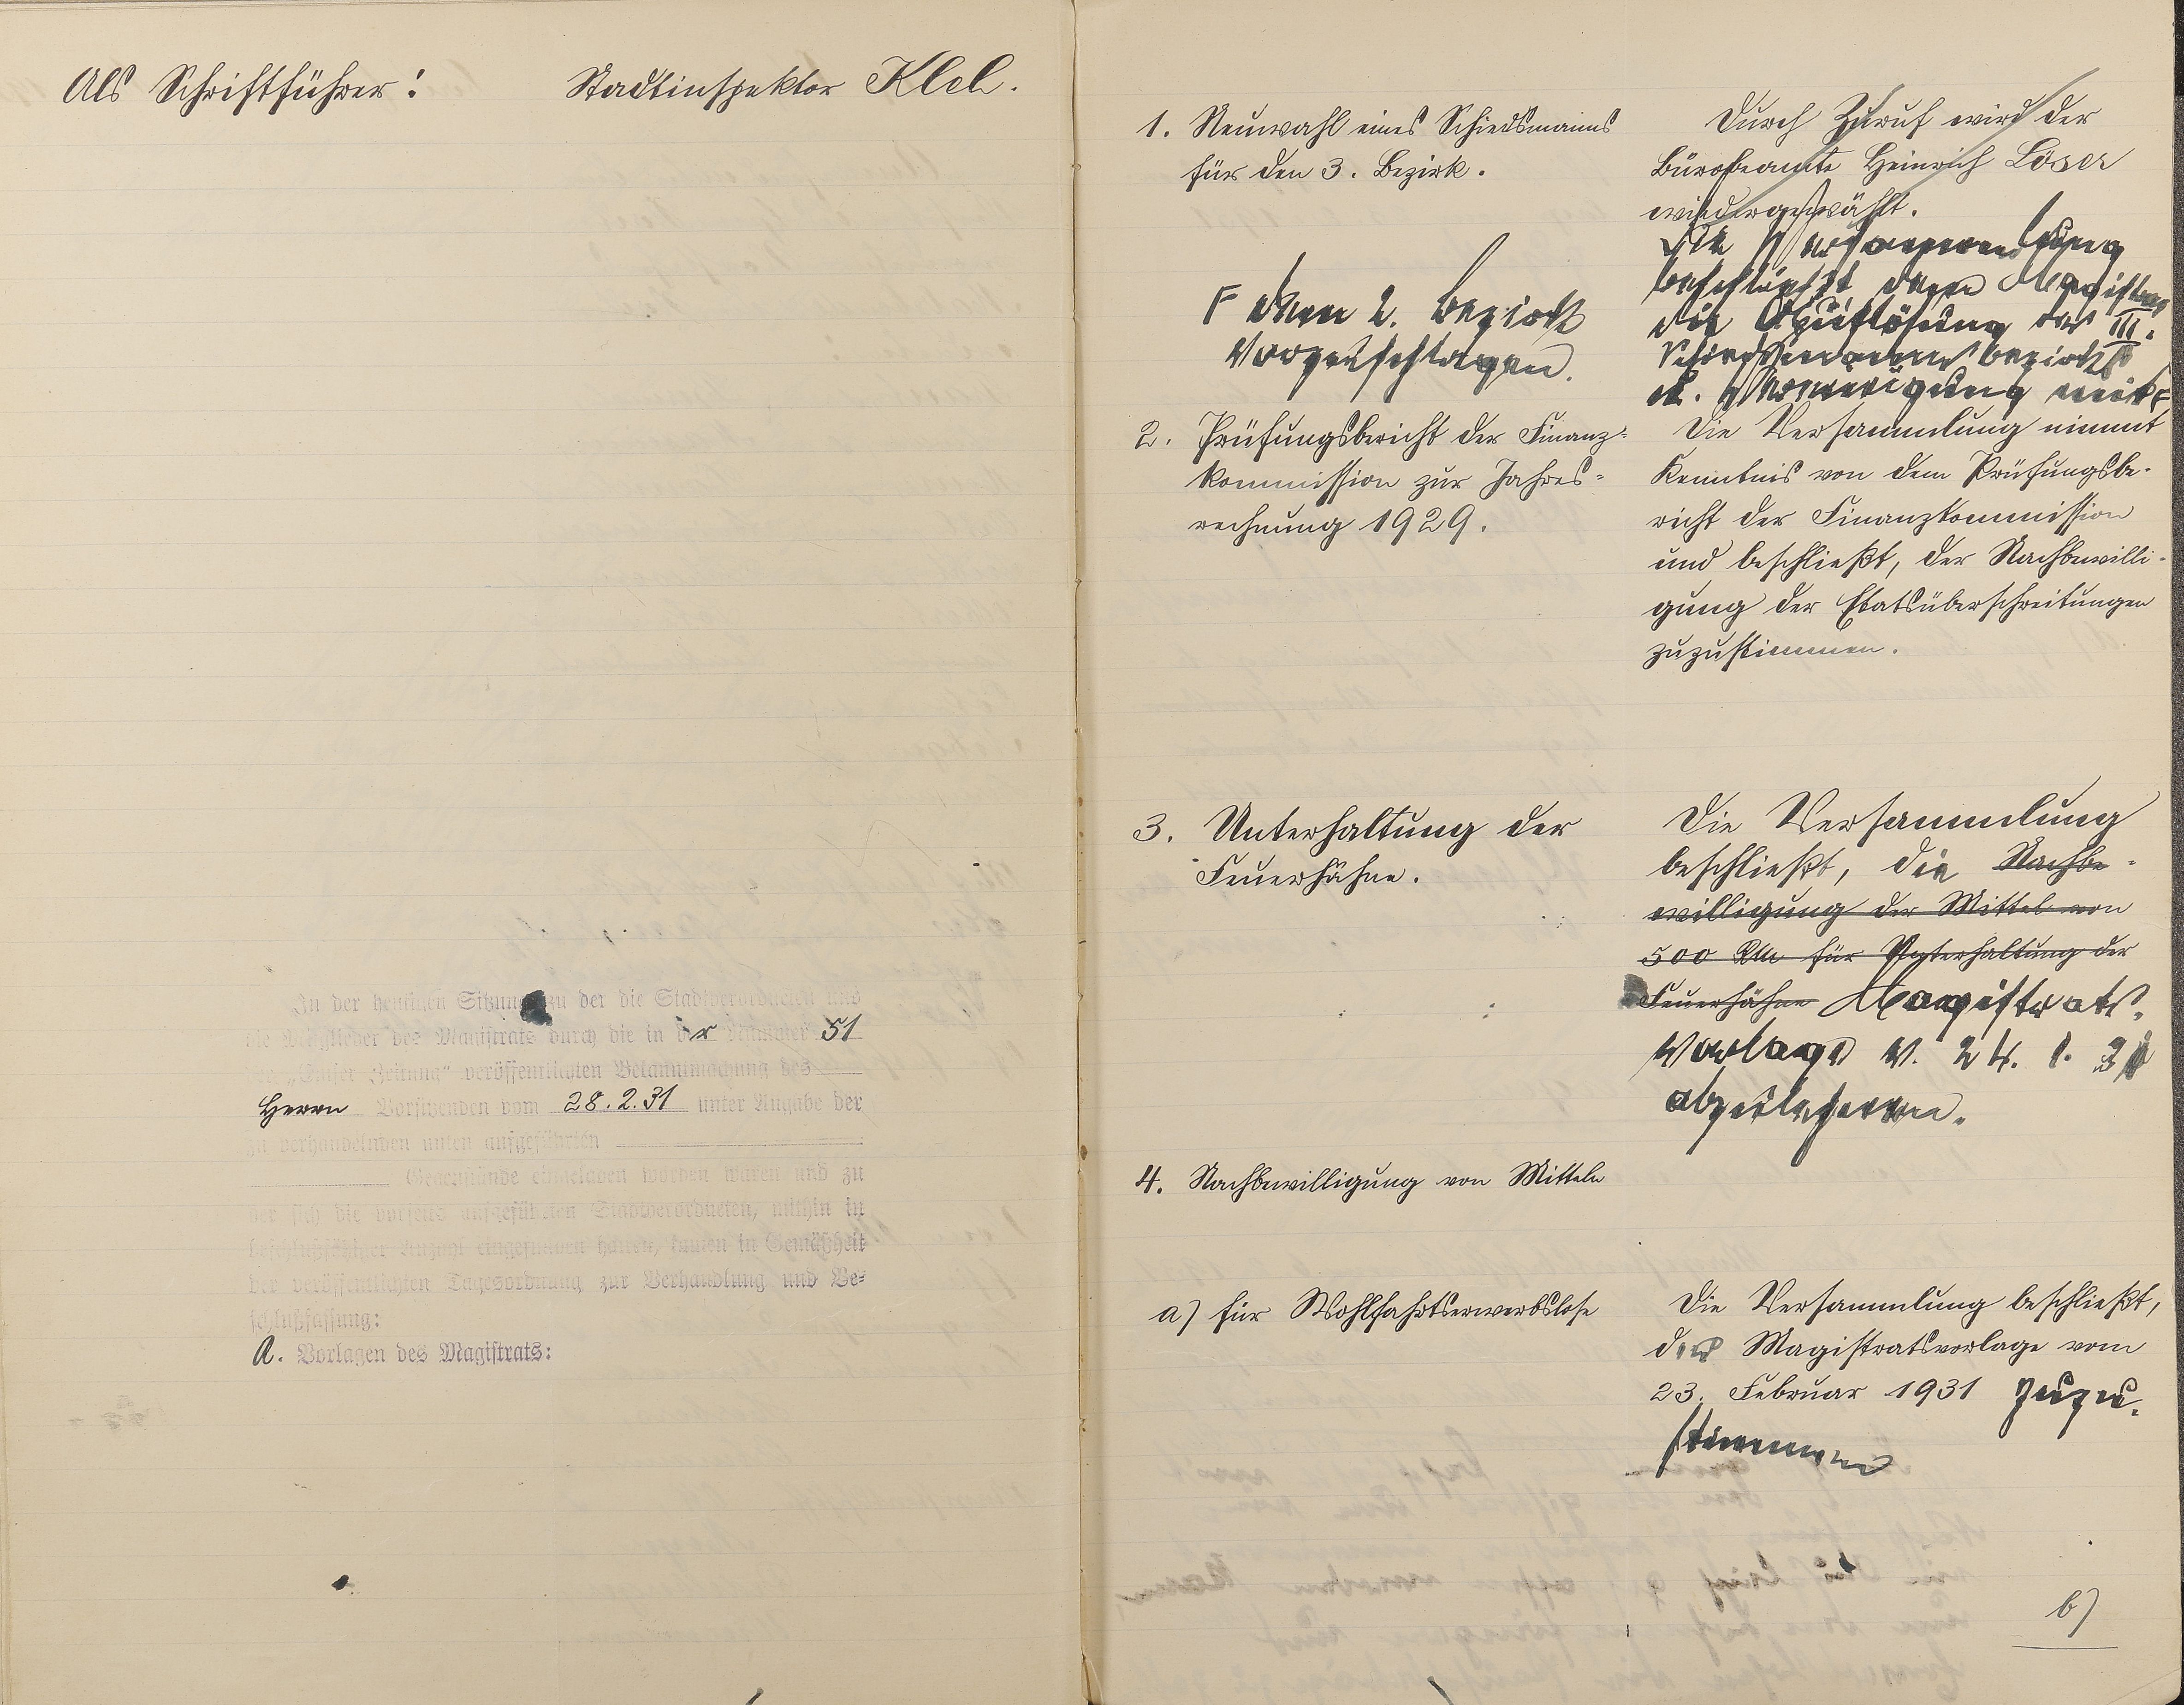 Als Schriftführer: Stadtinspektor Klel.
In der heutigen Sitzung zu der die Stadtverordneten und
die Mitglieder des Magistrats durch die in der Nummer 51
„Emser Zeitung“ veröffentlichten Bekanntmachung des
Herrn Vorsitzenden vom 28.2.31 unter Angabe der
zu verhandelnden unten aufgeführten
Gegenstände eingeladen worden waren und zu
der sich die vorseits aufgeführten Stadtverordneten, mithin in
beschlußfähiger Anzahl eingefunden hatten, kamen in Gemäßheit
der veröffentlichten Tagesordnung zur Verhandlung und Be-
schlußfassung:
A. Vorlagen des Magistrats:
1. Neuwahl eines Schiedsmanns
für den 3. Bezirk.
Durch Zuruf wird der
Bürobeamte Heinrich Löser
wiedergewählt.
Die Versammlung
beschließt dem Magistrat
die Auflösung des III.
Schiedsmannsbezirks
u. Vereinigung mit F
F dem 2. Bezirk
vorzuschlagen.
2. Prüfungsbericht der Finanz-
kommission zur Jahres-
rechnung 1929.
Die Versammlung nimmt
Kenntnis von dem Prüfungsbe-
richt der Finanzkommission
und beschließt, der Nachbewilli-
gung der Etatsüberschreitungen
zuzustimmen.
3. Unterhaltung der
Feuerhähne.
Die Versammlung
beschließt, die Nachbe-
willigung der Mittel von
500 RM für Unterhaltung der
Feuerhähne Magistrats-
vorlage v. 24. 1. 31
abzulehnen.
4. Nachbewilligung von Mitteln
a) für Wohlfahrtserwerbslose
Die Versammlung beschließt,
der Magistratsvorlage vom
23. Februar 1931 zuzu-
stimmen
b)